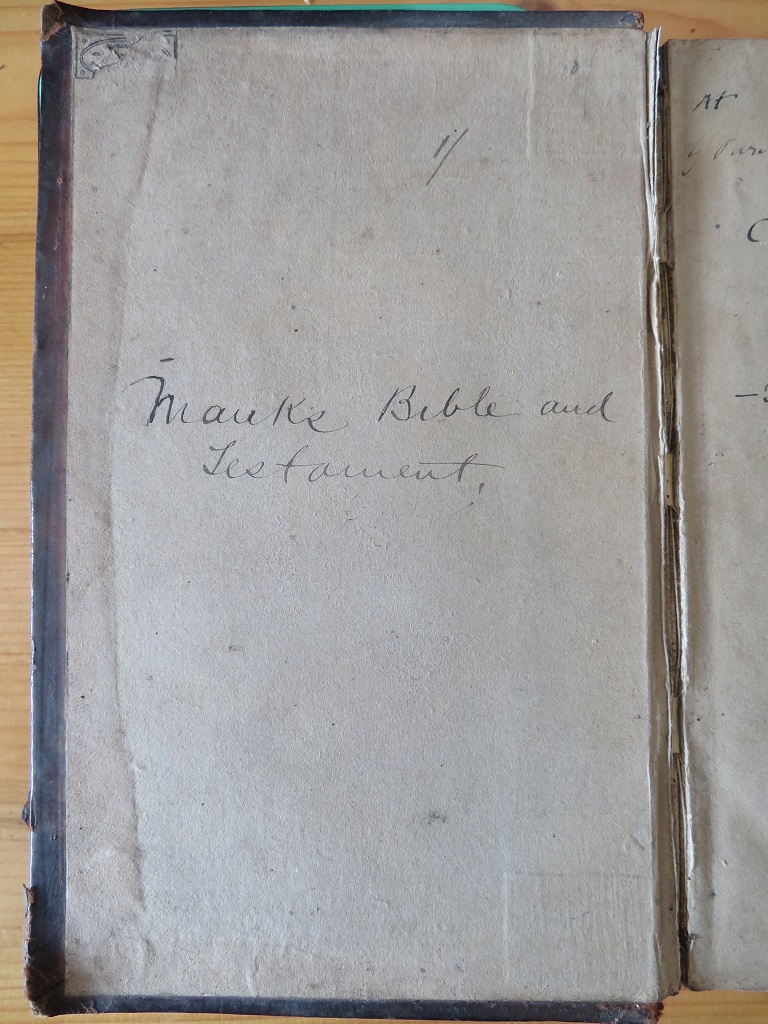 1/
Manks Bible and
Testament.
At